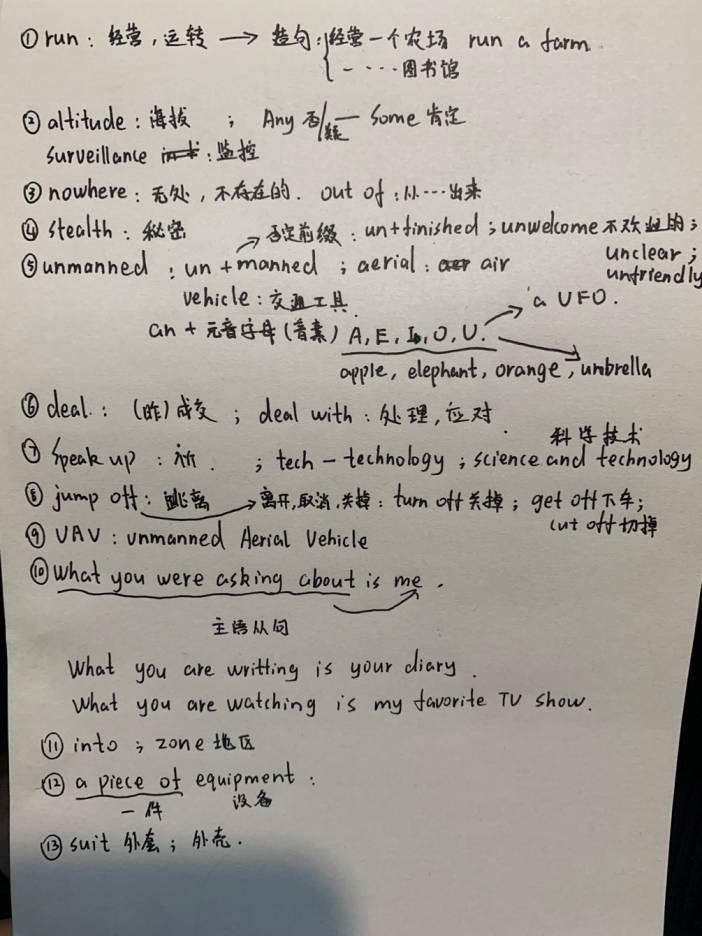 ① run：经营，运转 → 造句：经营一个农场 run a farm.
一 ···· 图书馆
② altitude：海拔 ； Any 否/疑 — Some 肯定
surveillance ：监控
③ nowhere：无处，不存在的. out of：从···出来
④ stealth：秘密 → 否定前缀：un+finished；unwelcome 不欢迎的；
unclear；
⑤ unmanned ：un + manned ；aerial：air
unfriendly
vehicle：交通工具.
a UFO.
an + 元音字母(音素) A, E, I, O, U.
apple, elephant, orange, umbrella
⑥ deal.：(昨)成交 ；deal with：处理，应对.
科学技术
⑦ Speak up ： . ；tech — technology；science and technology
⑧ jump off：跳离 → 离开,取消,关掉：turn off 关掉；get off 下车；
cut off 切掉
⑨ UAV：unmanned Aerial Vehicle
⑩ What you were asking about is me .
主语从句
What you are writting is your diary.
What you are watching is my favorite TV show.
⑪ into ；zone 地区
⑫ a piece of equipment：
一件 设备
⑬ suit 外套；外壳.